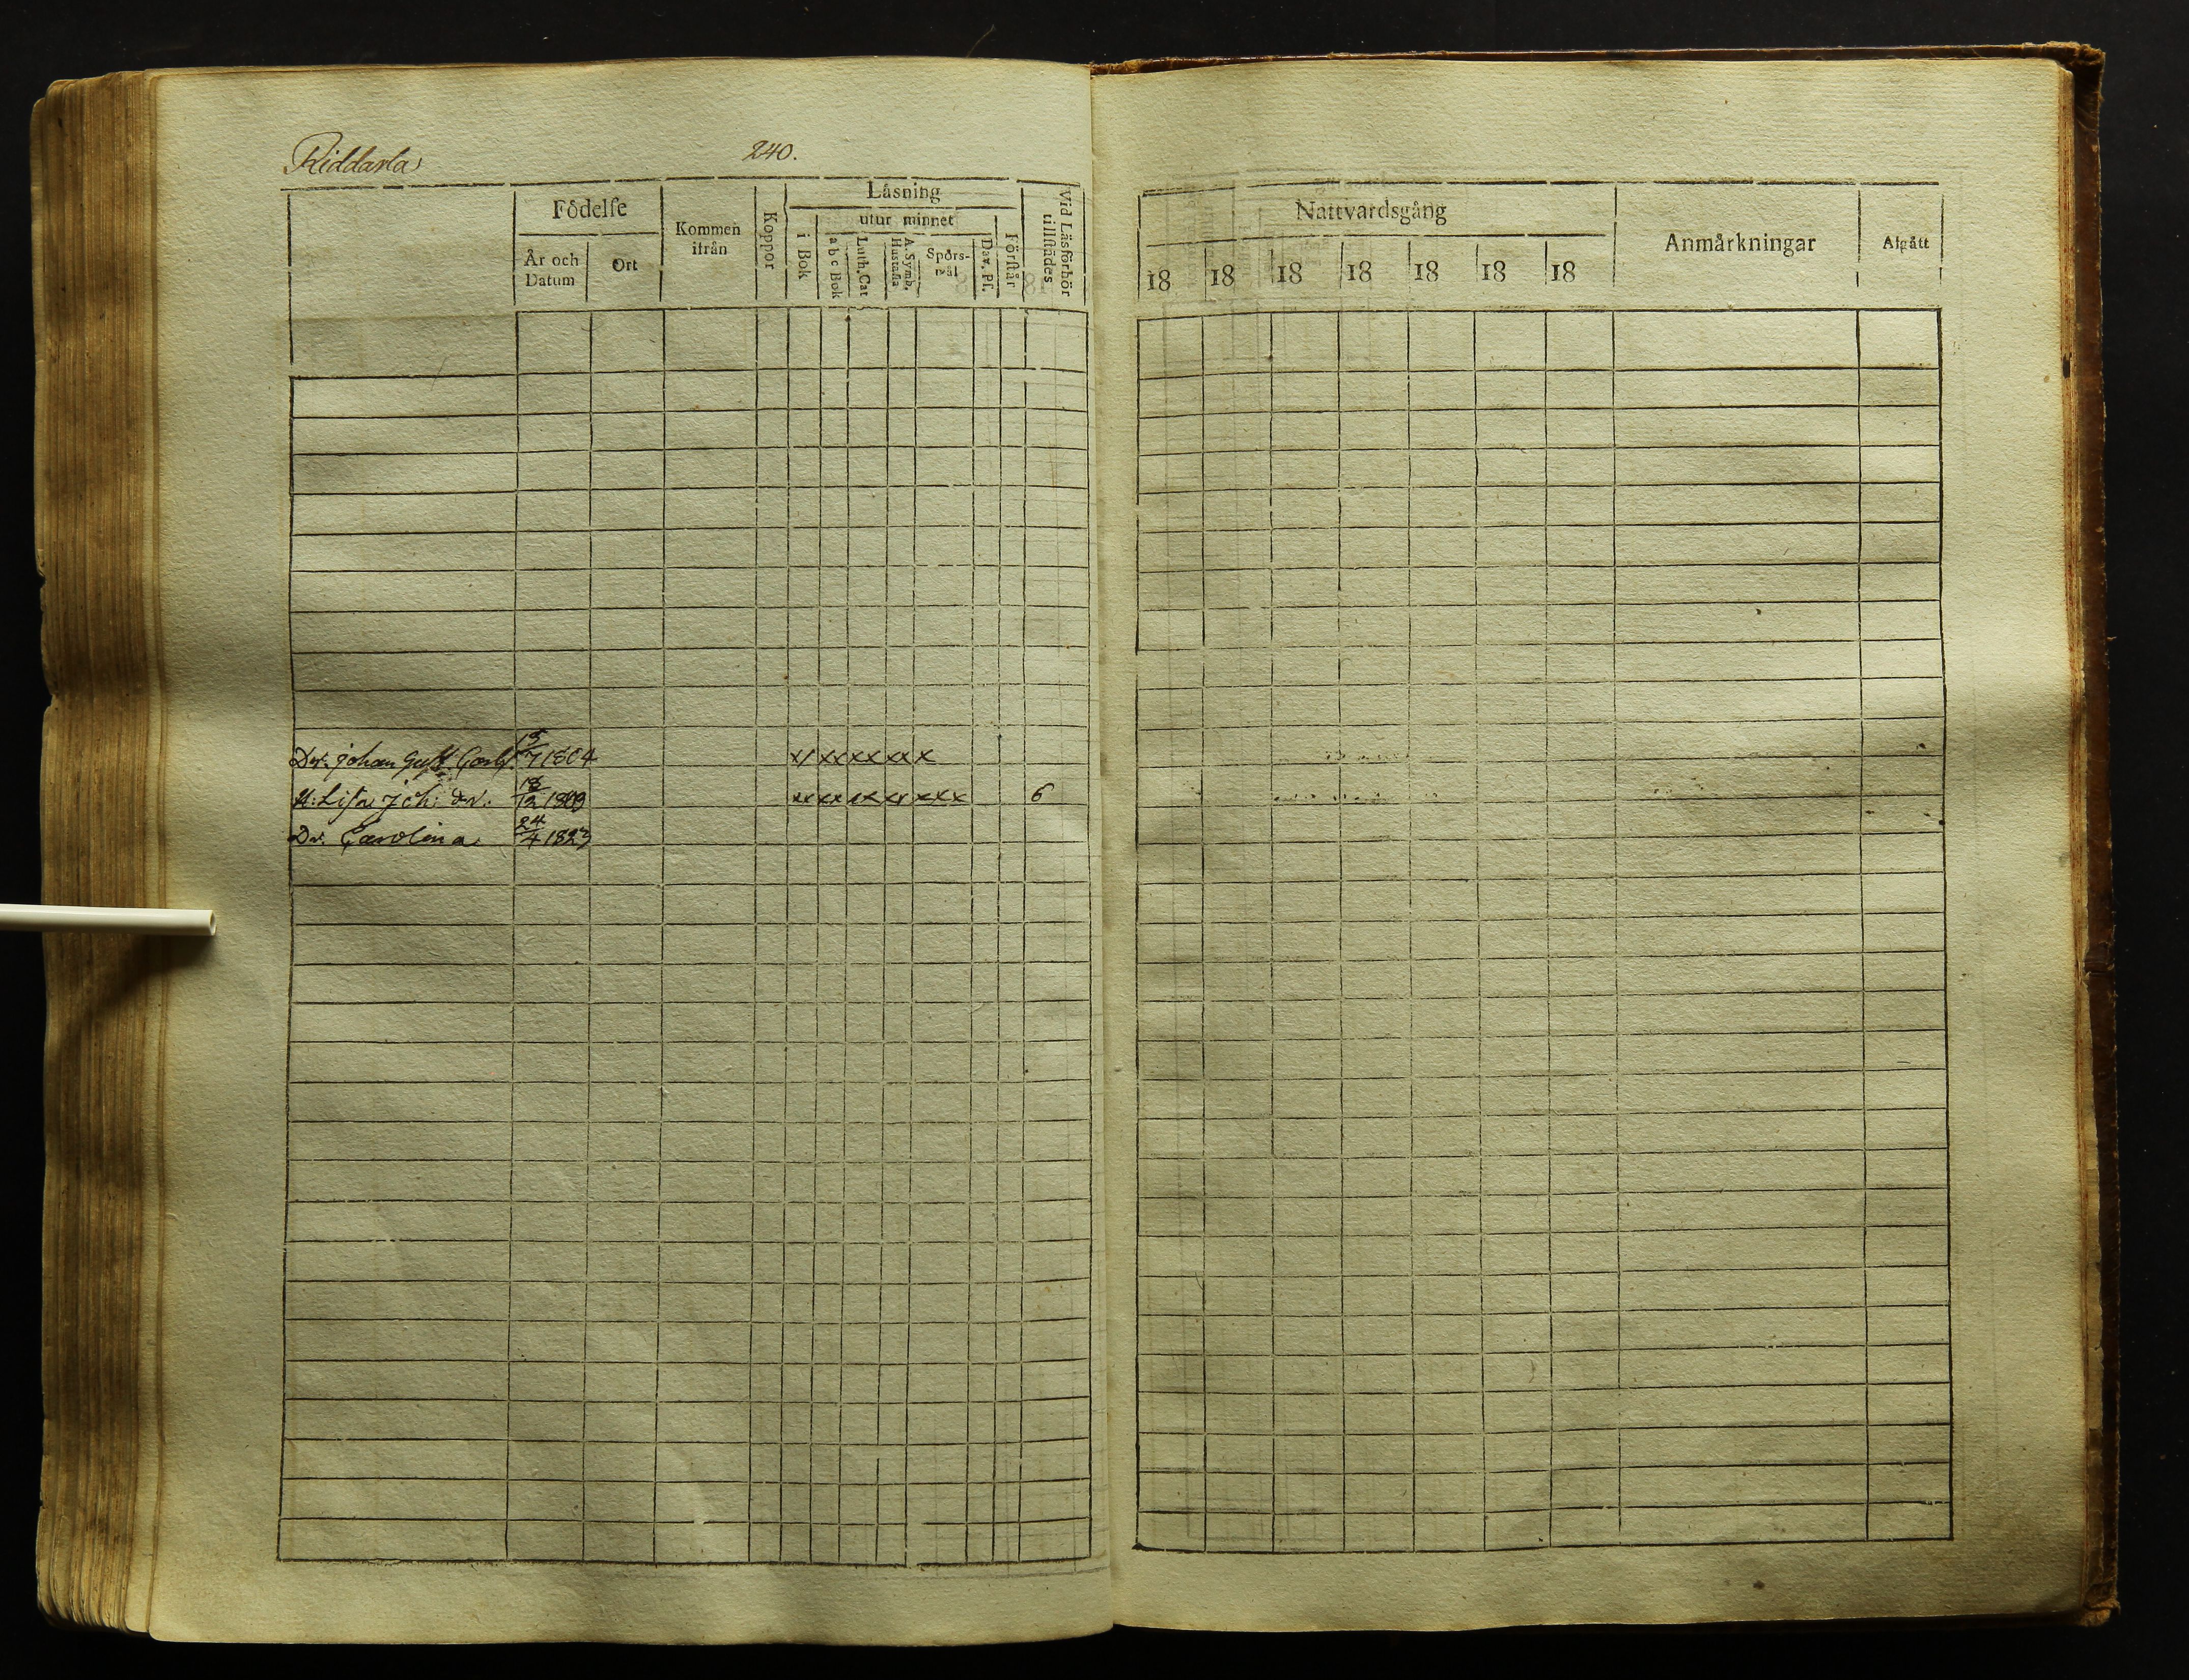 Riddarta
240.
Födelse
Kommen
ifrån
Koppor
Läsning
utur minnet
Vid Läsförhör
tillstädes
År och
Datum
Ort
i Bok
a b c Bok
Luth. Cat
A. Symb.
Hustafla
Spörs-
mål
Dav. Ps.
Förstår
Nattvardsgång
Anmärkningar
Afgått
18 18 18 18 18 18 18
Dr. Johan Gust. Carls. 7 1804 x/ xx xx xx x
H: Lisa Joh: dr. 18/12 1809 xx xx xx xx xxx 6
Dr. Carolina 24/4 1823